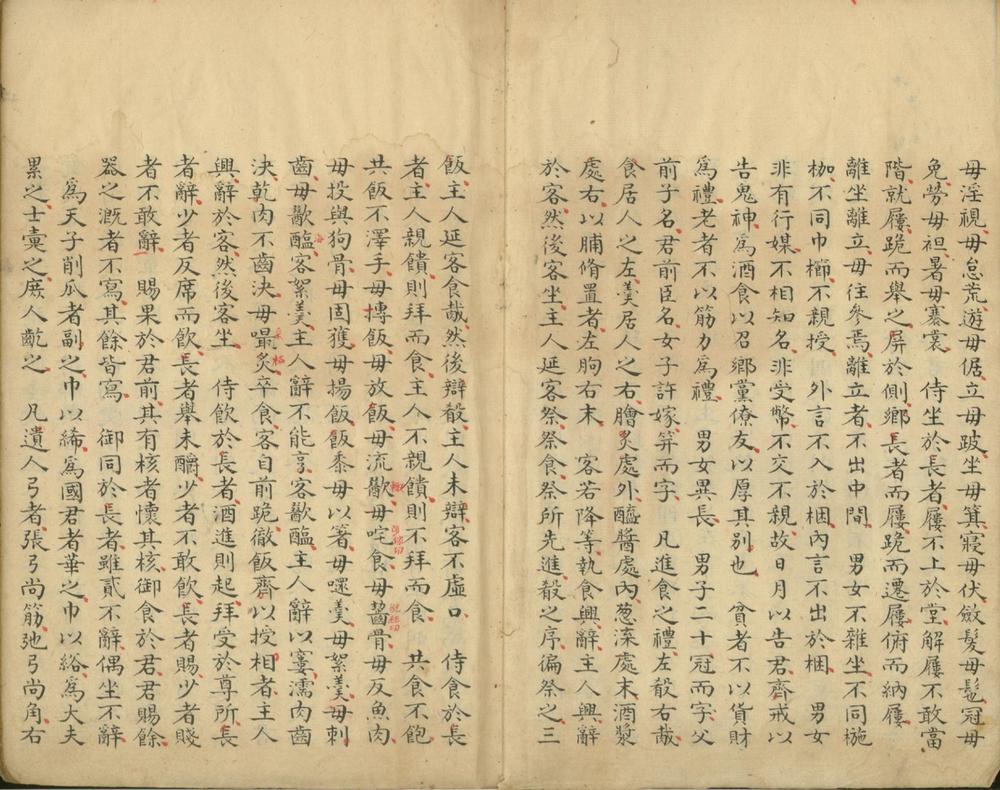 毋淫視毋怠荒遊毋倨立毋跛坐毋箕寢毋伏斂髮毋髢冠毋
免勞毋袒暑毋褰裳　侍坐於長者屨不上於堂解屨不敢當
階就屨跪而舉之屏於側鄉長者而屨跪而遷屨俯而納屨
離坐離立毋往參焉離立者不出中間　男女不雜坐不同椸
枷不同巾櫛不親授　外言不入於梱內言不出於梱　男女
非有行媒不相知名非受幣不交不親故日月以告君齊戒以
告鬼神為酒食以召鄉黨僚友以厚其別也　貧者不以貨財
為禮老者不以筋力為禮　男女異長　男子二十冠而字父
前子名君前臣名女子許嫁笄而字　凡進食之禮左殽右胾
食居人之左羹居人之右膾炙處外醯醬處內蔥渫處末酒漿
處右以脯脩置者左朐右末　客若降等執食興辭主人興辭
於客然後客坐主人延客祭祭食祭所先進殽之序徧祭之三
飯主人延客食胾然後辯殽主人未辯客不虛口　侍食於長
者主人親饋則拜而食主人不親饋則不拜而食　共食不飽
共飯不澤手毋摶飯毋放飯毋流歠毋咤食毋齧骨毋反魚肉
毋投與狗骨毋固獲毋揚飯飯黍毋以箸毋嚃羹毋絮羹毋刺
齒毋歠醢客絮羹主人辭不能亨客歠醢主人辭以窶濡肉齒
決乾肉不齒決毋嘬炙卒食客自前跪徹飯齊以授相者主人
興辭於客然後客坐　侍飲於長者酒進則起拜受於尊所長
者辭少者反席而飲長者舉未釂少者不敢飲長者賜少者賤
者不敢辭　賜果於君前其有核者懷其核御食於君君賜餘
器之溉者不寫其餘皆寫　御同於長者雖貳不辭偶坐不辭
為天子削瓜者副之巾以絺為國君者華之巾以綌為大夫
累之士疐之庶人齕之　凡遺人弓者張弓尚筋弛弓尚角右